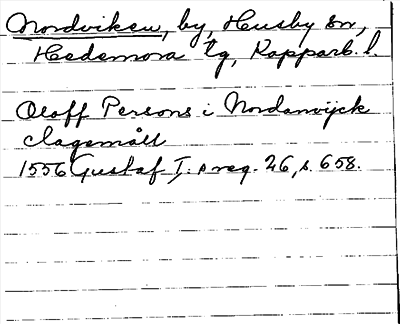 Nordviken, by, Husby sn,
Hedemora tg, Kopparb. l.
Oloff Persons i Nordanvijck
clagemåll
1556 Gustaf I:s reg. 26, s. 658.